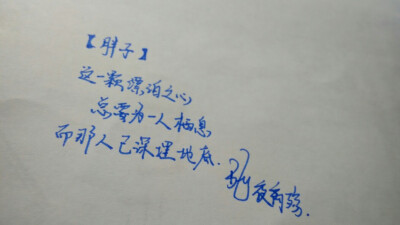 【胖子】
这一颗漂泊之心
总要为一人栖息
而那人已深埋地底.
By夜雨殇.